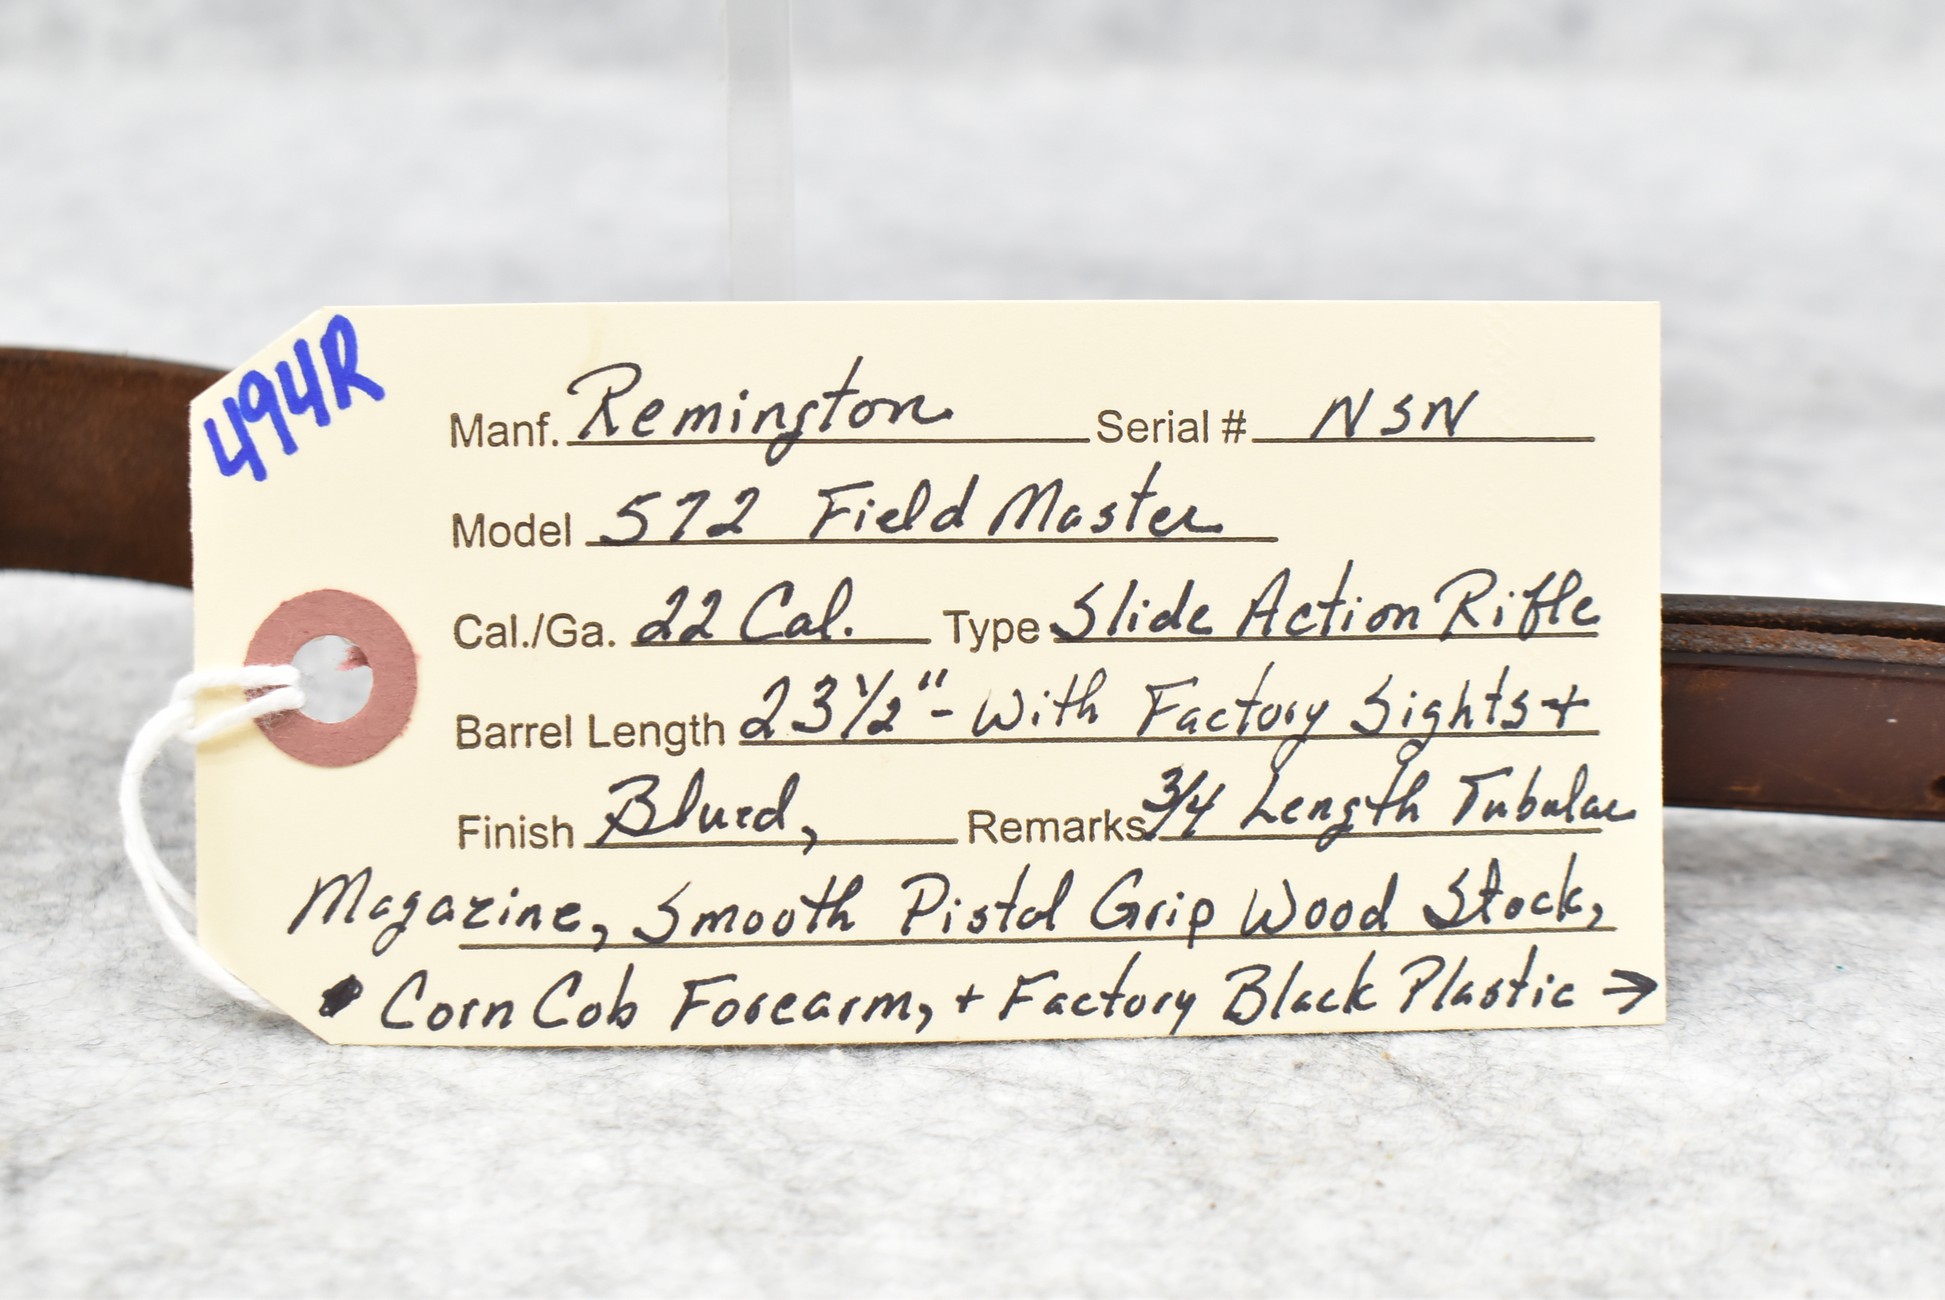 494R
Manf. Remington Serial # NSN
Model 572 Field Master
Cal./Ga. 22 Cal. Type Slide Action Rifle
Barrel Length 23 1/2" - With Factory Sights +
Finish Blued, Remarks 3/4 Length Tubular
Magazine, Smooth Pistol Grip Wood Stock,
Corn Cob Forearm, + Factory Black Plastic →